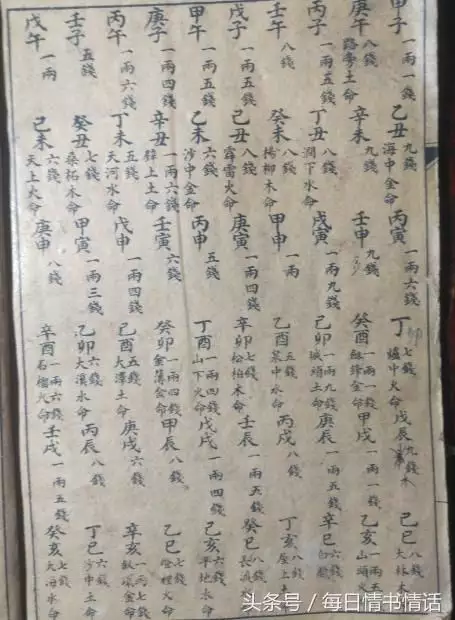 甲子 一兩一錢 乙丑 九錢 海中金命 丙寅 一兩六錢 丁卯 七錢 爐中火命 戊辰 九錢 木 己巳 八錢 大林木
庚午 八錢 路旁土命 辛未 九錢 壬申 九錢 癸酉 一兩一錢 劍鋒金命 甲戌 一兩一錢 乙亥 一兩五 山頭火
丙子 一兩五錢 丁丑 八錢 澗下水命 戊寅 一兩九錢 己卯 一兩九錢 城頭土命 庚辰 一兩五錢 辛巳 六錢 白
壬午 八錢 癸未 八錢 楊柳木命 甲申 一兩 乙酉 五錢 泉中水命 丙戌 八錢 丁亥 八錢 屋上土
戊子 一兩五錢 己丑 八錢 霹靂火命 庚寅 一兩四錢 辛卯 七錢 松柏木命 壬辰 一兩五錢 癸巳 八錢 長流
甲午 一兩五錢 乙未 六錢 沙中金命 丙申 五錢 丁酉 一兩四錢 山下火命 戊戌 一兩四錢 己亥 六錢 平地木命
庚子 一兩四錢 辛丑 一兩六錢 辟上土命 壬寅 六錢 癸卯 一兩四錢 金薄金命 甲辰 八錢 乙巳 七錢 燈裡火命
丙午 一兩六錢 丁未 五錢 天河水命 戊申 一兩四錢 己酉 五錢 大澤土命 庚戌 六錢 辛亥 一兩七錢 釵環金命
壬子 五錢 癸丑 七錢 桑柘木命 甲寅 一兩三錢 乙卯 六錢 大溪水命 丙辰 八錢 丁巳 六錢 沙中土命
戊午 一兩 己未 六錢 天上火命 庚申 八錢 辛酉 一兩六錢 石榴火命 壬戌 一兩五錢 癸亥 七錢 大海水命
头条号 / 每日情书情话